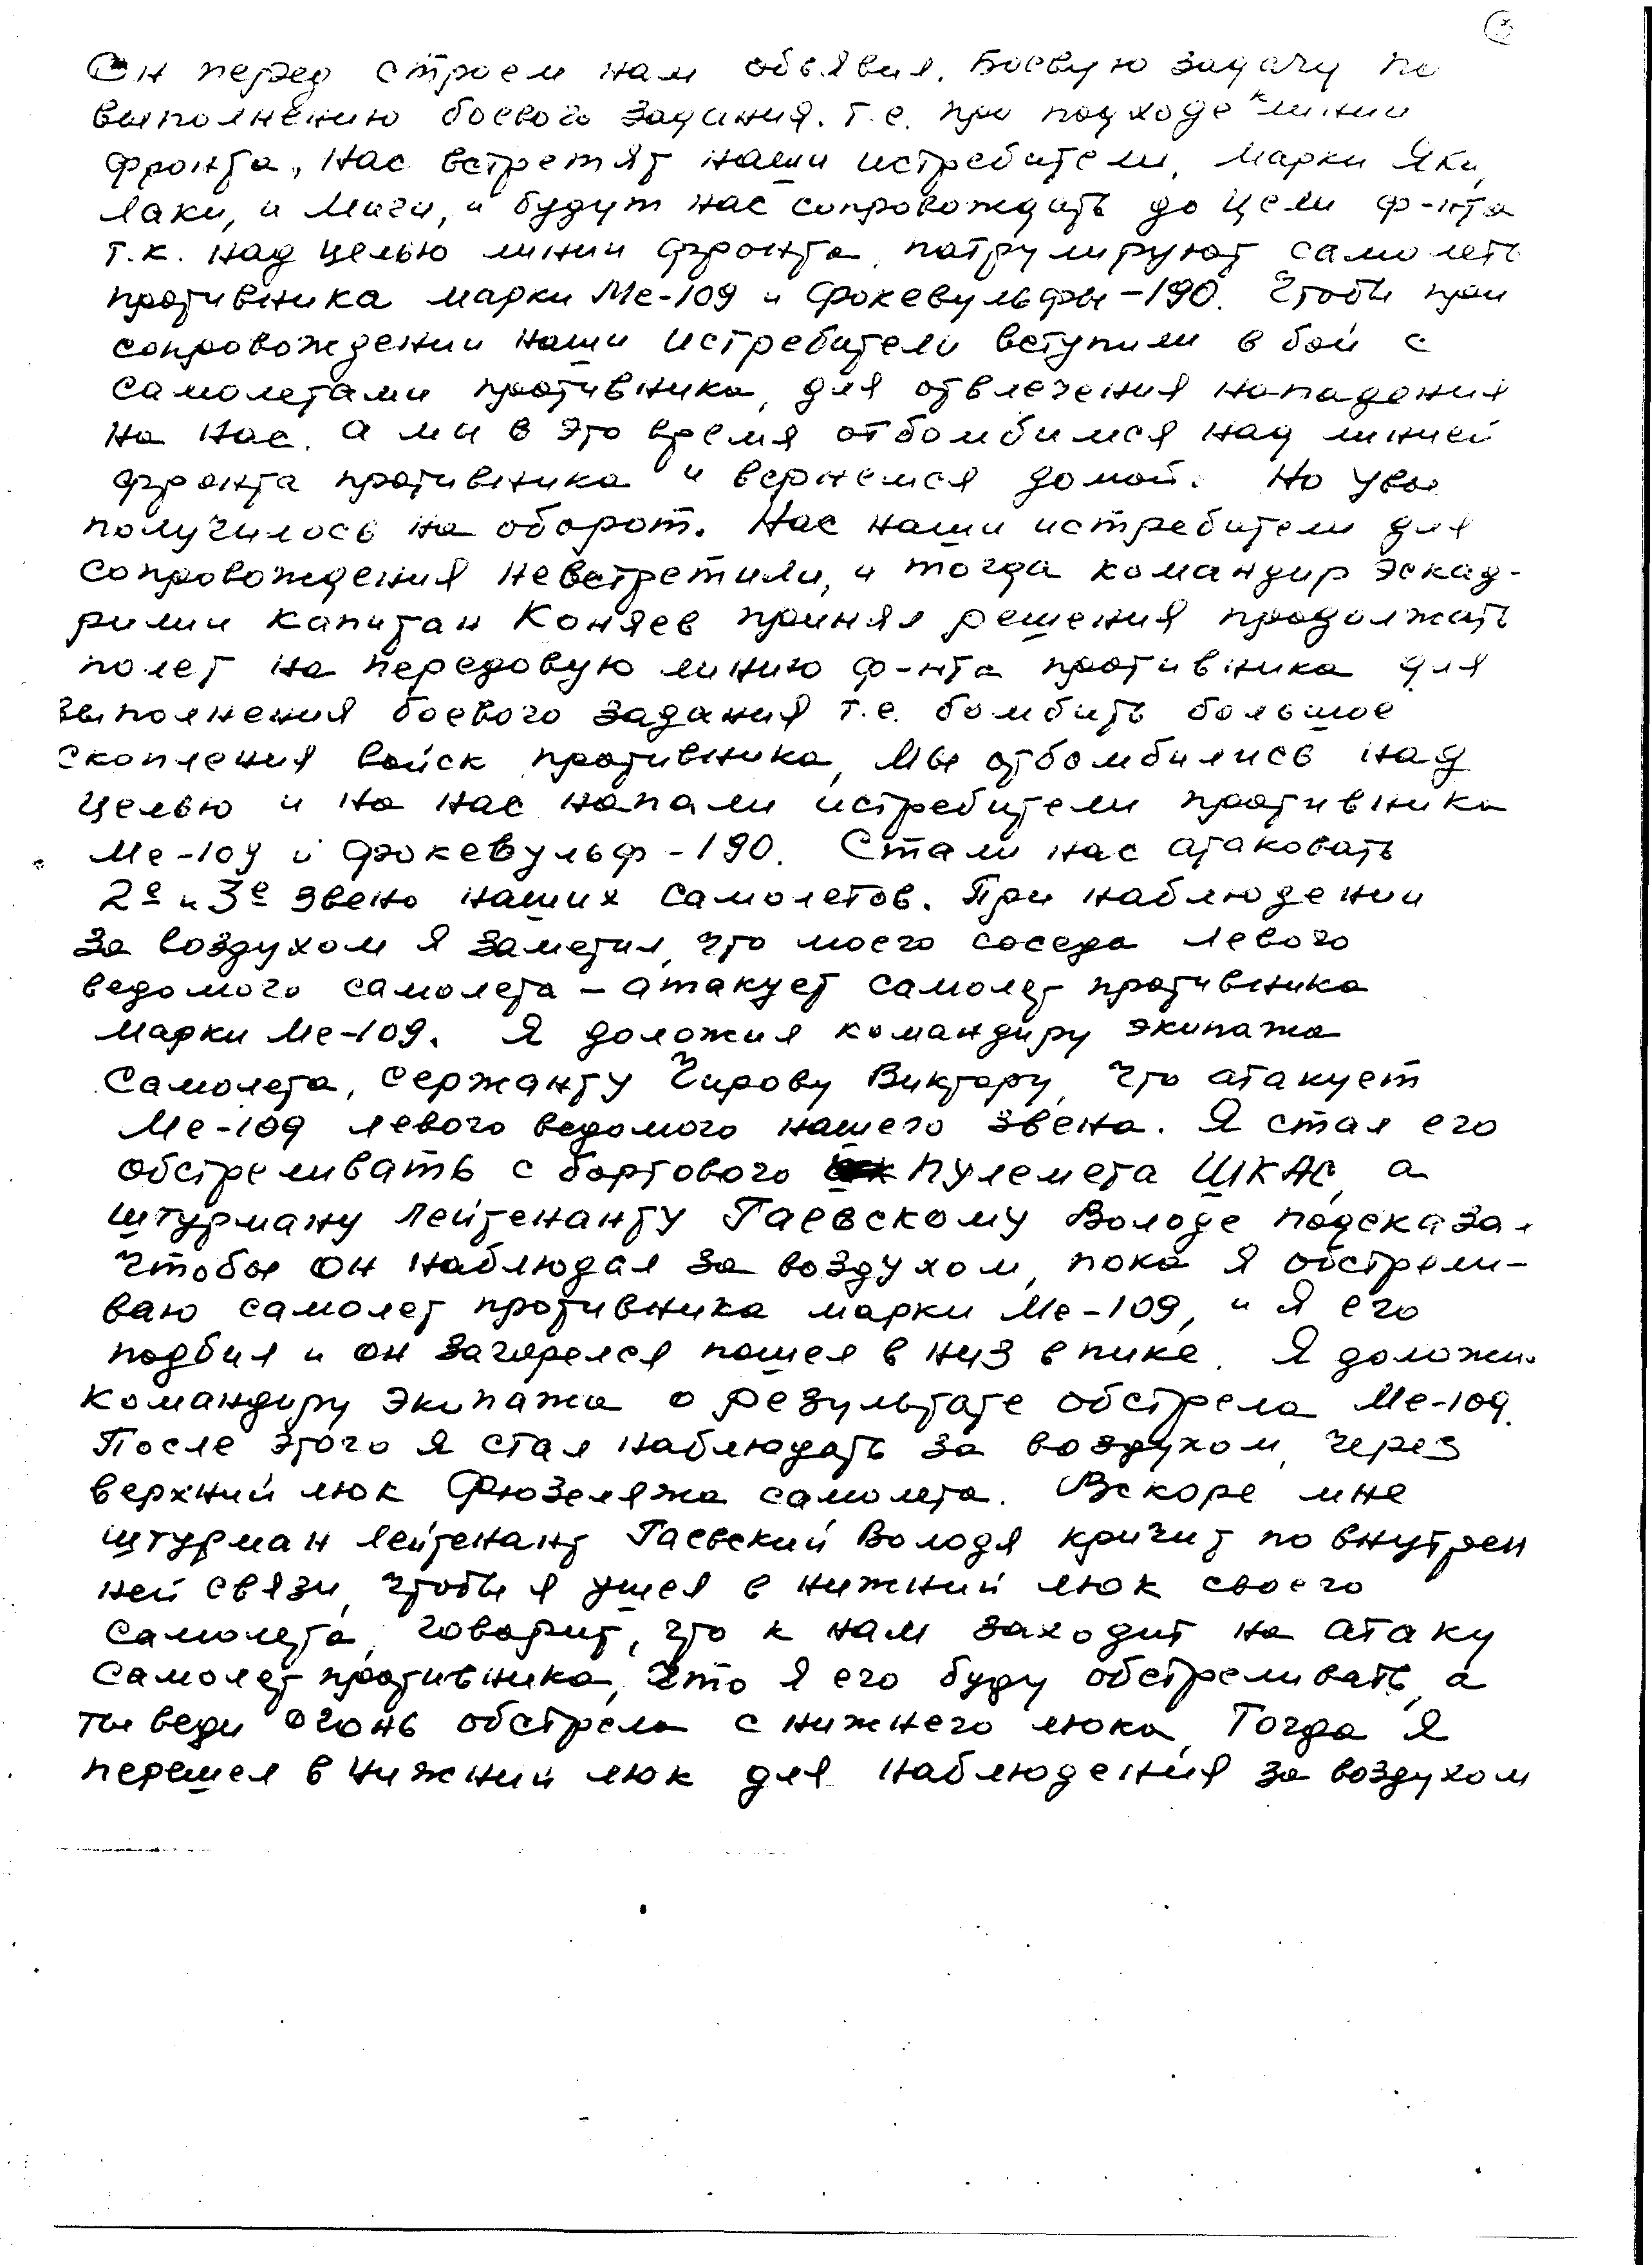 3
Он перед строем нам обьявил. Боевую задачу по
выполнению боевого задания. т.е. при подходе к линии
фронта, нас встретят наши истребители, марки Яки,
Лаки, и Миги, и будут нас сопровождать до цели ф-нта
т.к. над целью линии фронта, патрулируют самолеты
противника марки Ме-109 и Фокевульфы-190. Чтобы при
сопровождении наши истребители вступили в бой с
самолетами противника, для отвлечения нападения
на нас. а мы в это время отбомбимся над линией
фронта противника и вернемся домой. Но увы
получилось на оборот. Нас наши истребители для
сопровождения невстретили, и тогда командир эскад-
рилии капитан Коняев принял решения продолжать
полет на передовую линию ф-нта противника для
выполнения боевого задания т.е. бомбить большое
скопления войск противника, Мы отбомбились над
целью и на нас напали истребители противника
Ме-109 и Фокевульф-190. Стали нас атаковать
2е и 3е звено наших самолетов. При наблюдении
за воздухом я заметил, что моего соседа левого
ведомого самолета - атакует самолет противника
марки Ме-109. Я доложил командиру экипажа
самолета, сержанту Чирову Виктору, что атакует
Ме-109 левого ведомого нашего звена. Я стал его
обстреливать с бортового пулемета ШКАС, а
штурману лейтенанту Гаевскому Володе подсказал
чтобы он наблюдал за воздухом, пока я обстрели-
ваю самолет противника марки Ме-109, и я его
подбил и он загорелся пошел в низ в пике. Я доложил
командиру экипажа о результате обстрела Ме-109.
После этого я стал наблюдать за воздухом, через
верхний люк фюзеляжа самолета. Вскоре мне
штурман лейтенант Гаевский Володя кричит по внутрен
ней связи, чтобы я ушел в нижний люк своего
самолета, говорит, что к нам заходит на атаку
самолет противника, что я его буду обстреливать, а
ты веди огонь обстрела с нижнего люка, Тогда я
перешел в нижний люк для наблюдения за воздухом